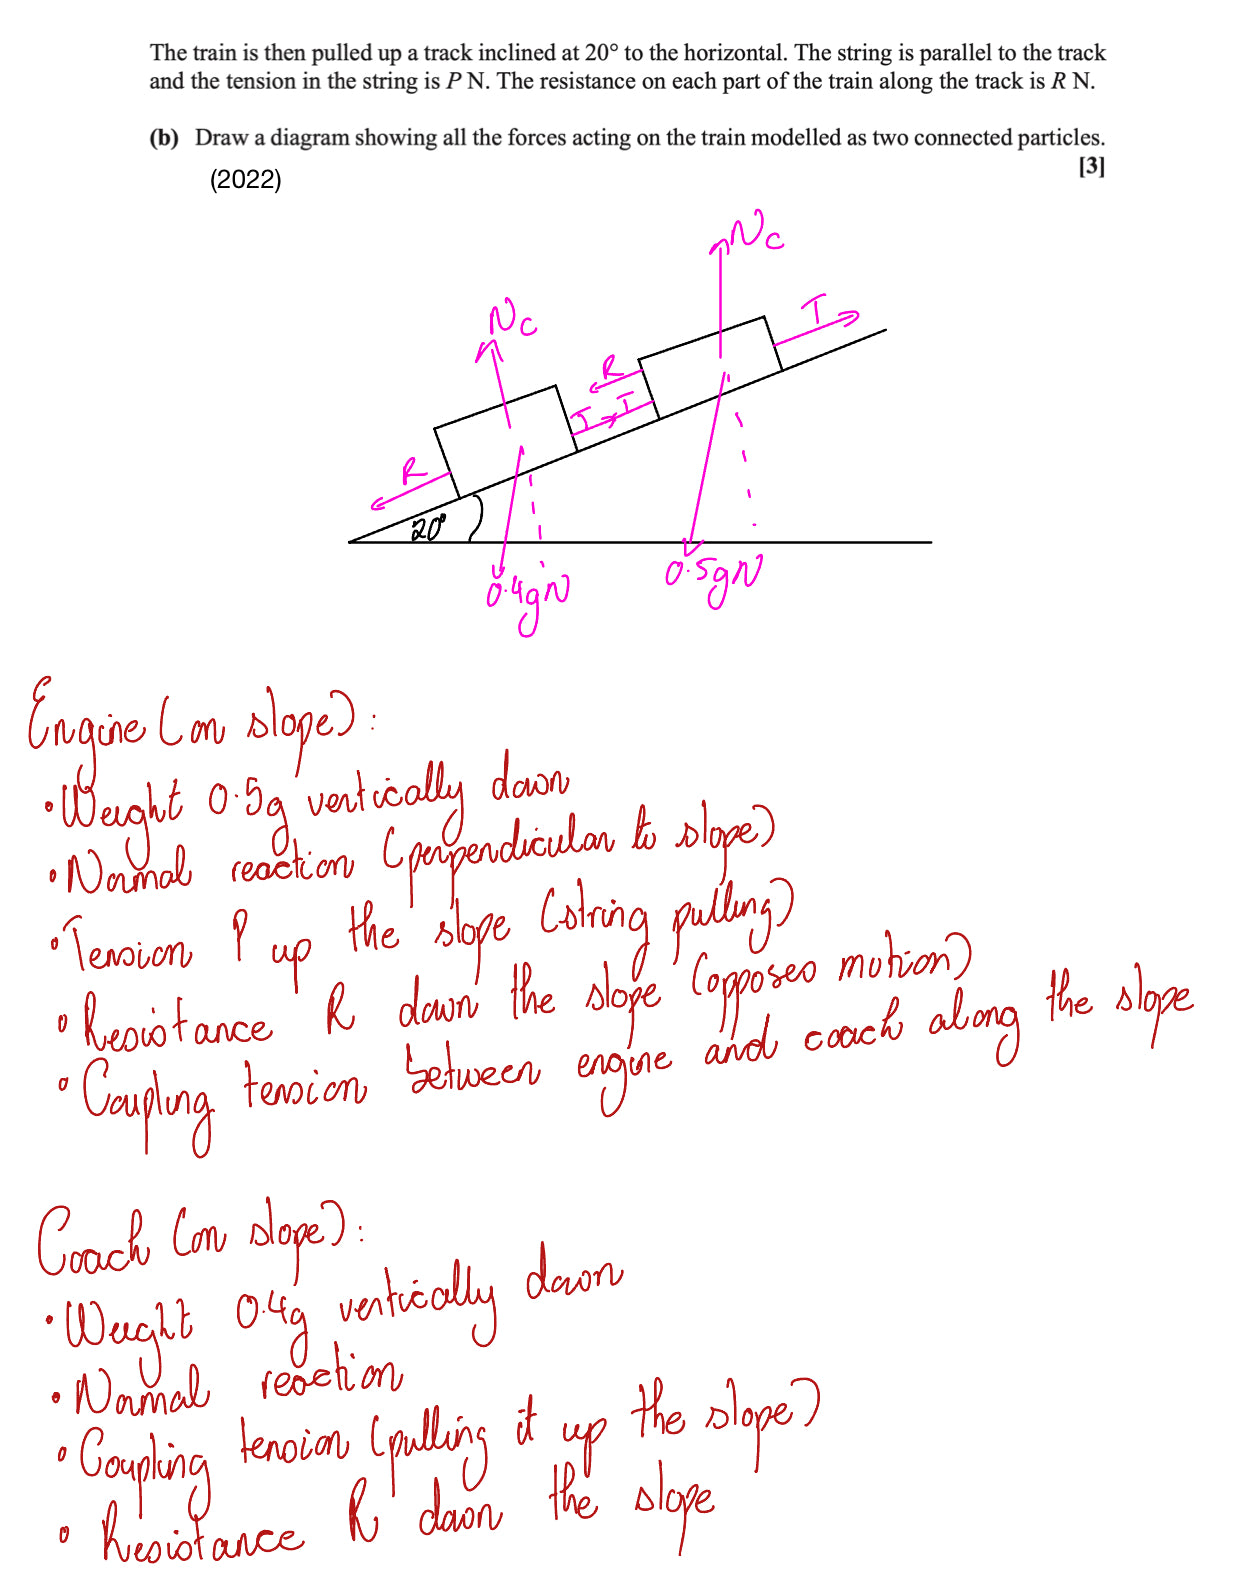 The train is then pulled up a track inclined at 20° to the horizontal. The string is parallel to the track
and the tension in the string is P N. The resistance on each part of the train along the track is R N.
(b) Draw a diagram showing all the forces acting on the train modelled as two connected particles.
[3]
(2022)
Nc
T
Nc
R
T T
R
20°
0.4gN
0.5gN
Engine (on slope):
• Weight 0.5g vertically down
• Normal reaction (perpendicular to slope)
• Tension P up the slope (string pulling)
• Resistance R down the slope (opposes motion)
• Coupling tension between engine and coach along the slope
Coach (on slope):
• Weight 0.4g vertically down
• Normal reaction
• Coupling tension (pulling it up the slope)
• Resistance R down the slope